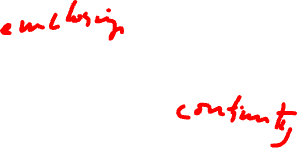 enclosing
continuity